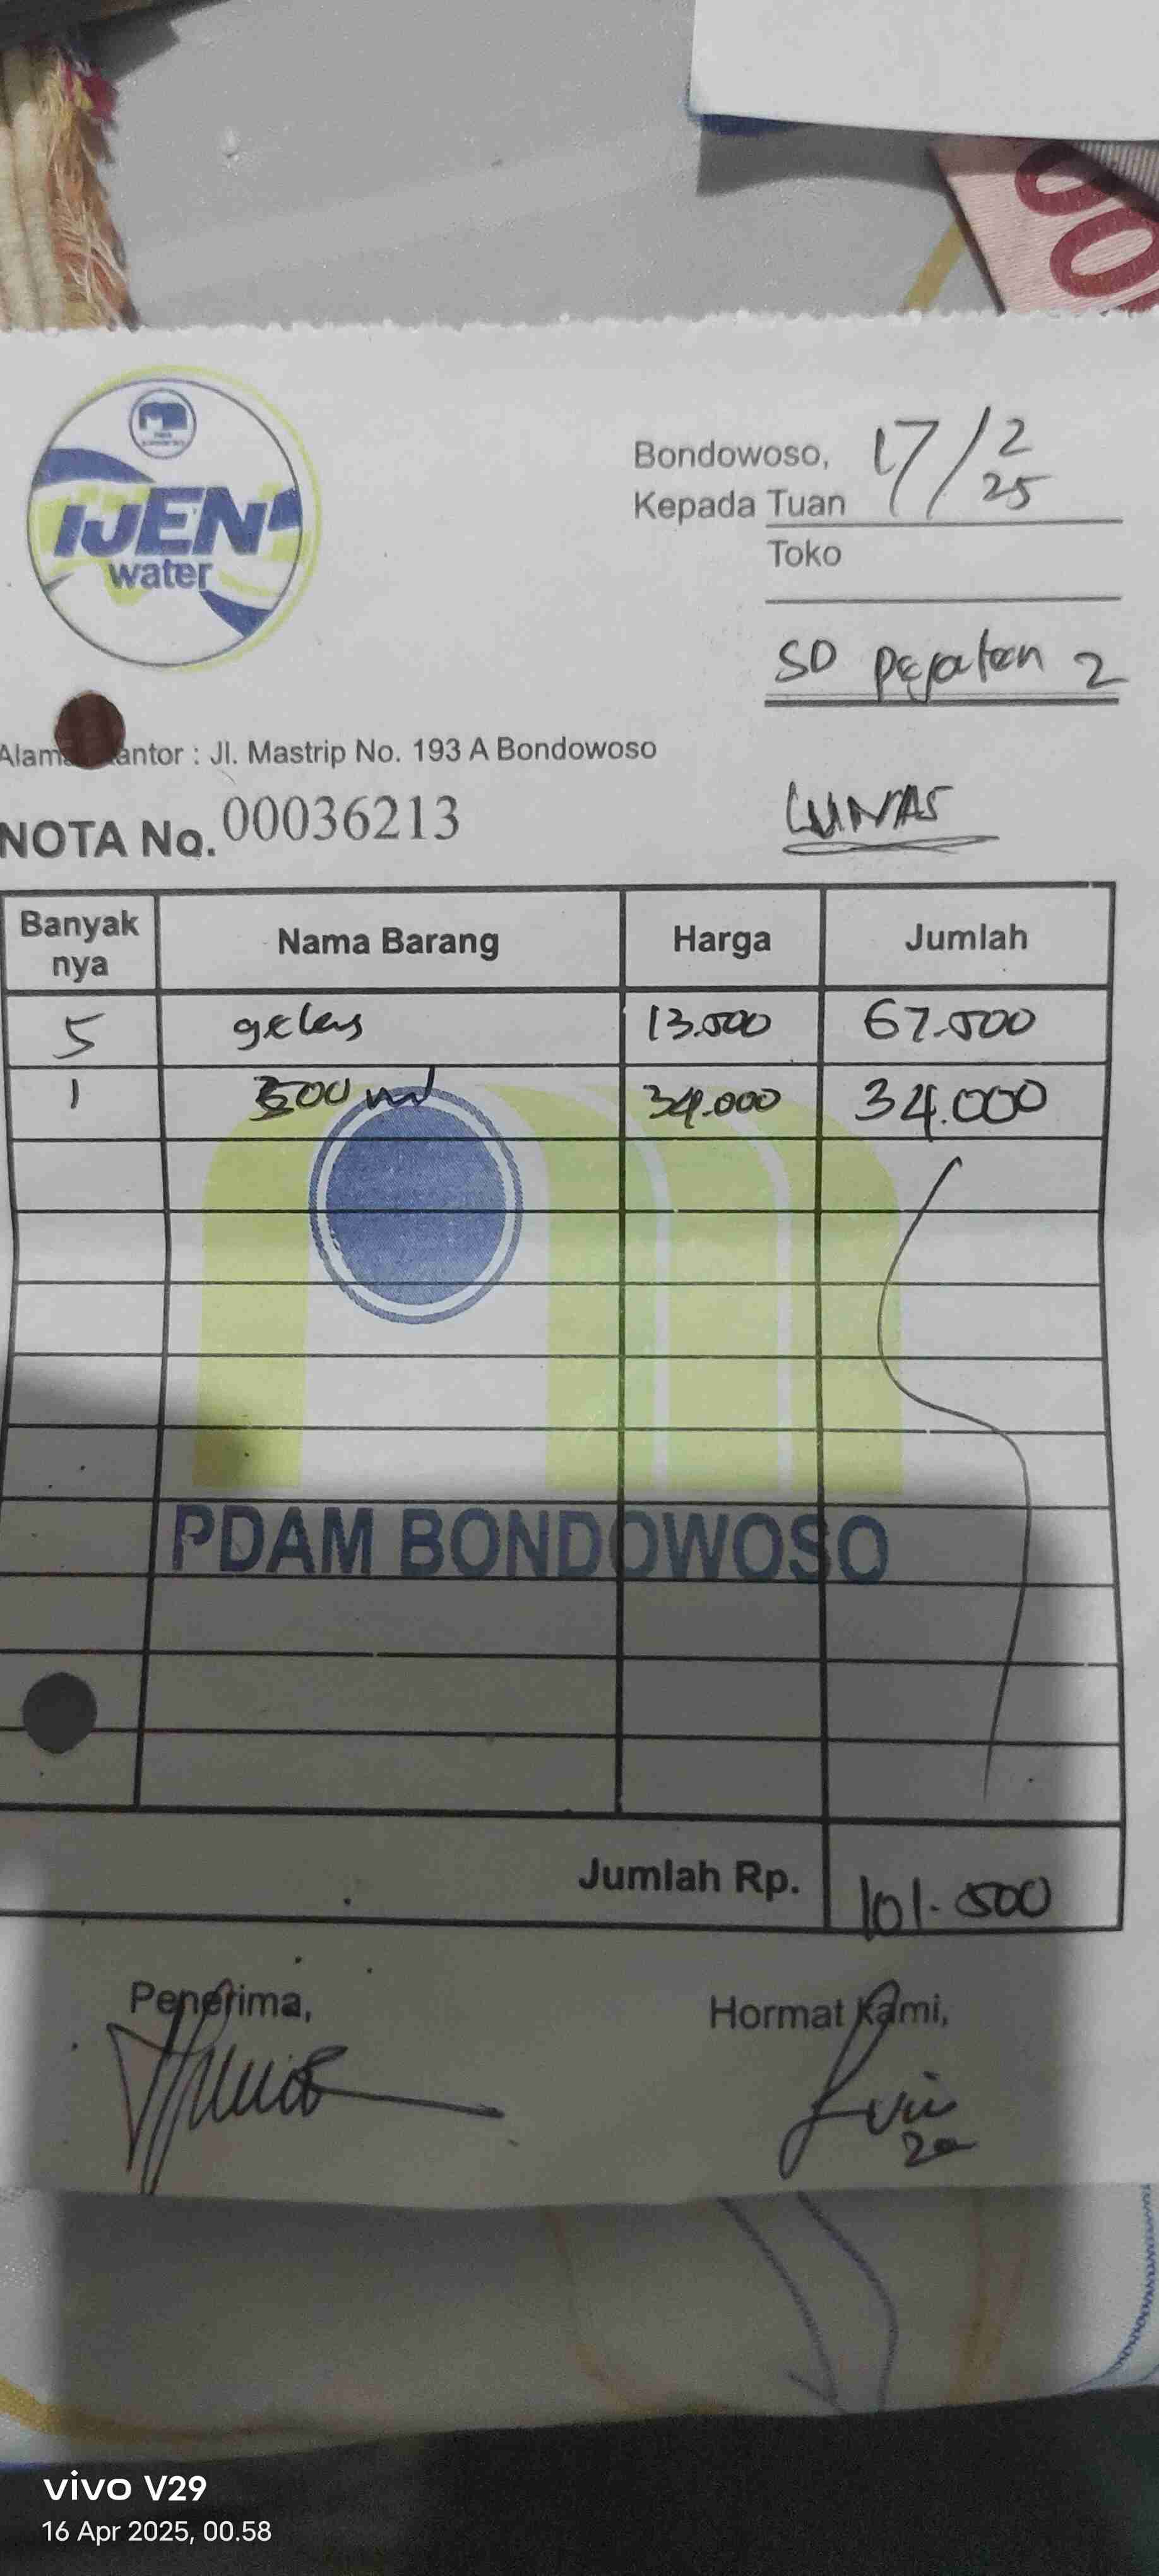 00
IJEN
water
Bondowoso, 17/2
25
Kepada Tuan
Toko
SD Pejaten 2
Alamat Kantor : Jl. Mastrip No. 193 A Bondowoso
LUNAS
NOTA No. 00036213
Banyak nya Nama Barang Harga Jumlah
5 gelas 13.500 67.500
1 ml 34.000 34.000
PDAM BONDOWOSO
Jumlah Rp. 101.500
Penerima, Hormat Kami,
vivo V29
16 Apr 2025, 00.58